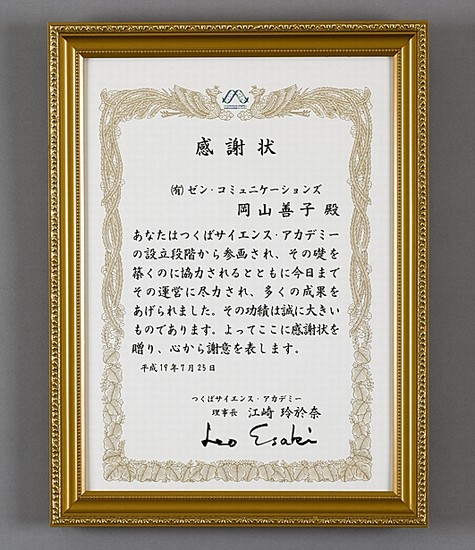 感謝状
㈲ゼン・コミュニケーションズ
岡山善子殿
あなたはつくばサイエンス・アカデミー
の設立段階から参画され、その礎を
築くのに協力されるとともに今日まで
その運営に尽力され、多くの成果を
あげられました。その功績は誠に大きい
ものであります。よってここに感謝状を
贈り、心から謝意を表します。
平成19年7月25日
つくばサイエンス・アカデミー
理事長 江崎玲於奈
Leo Esaki